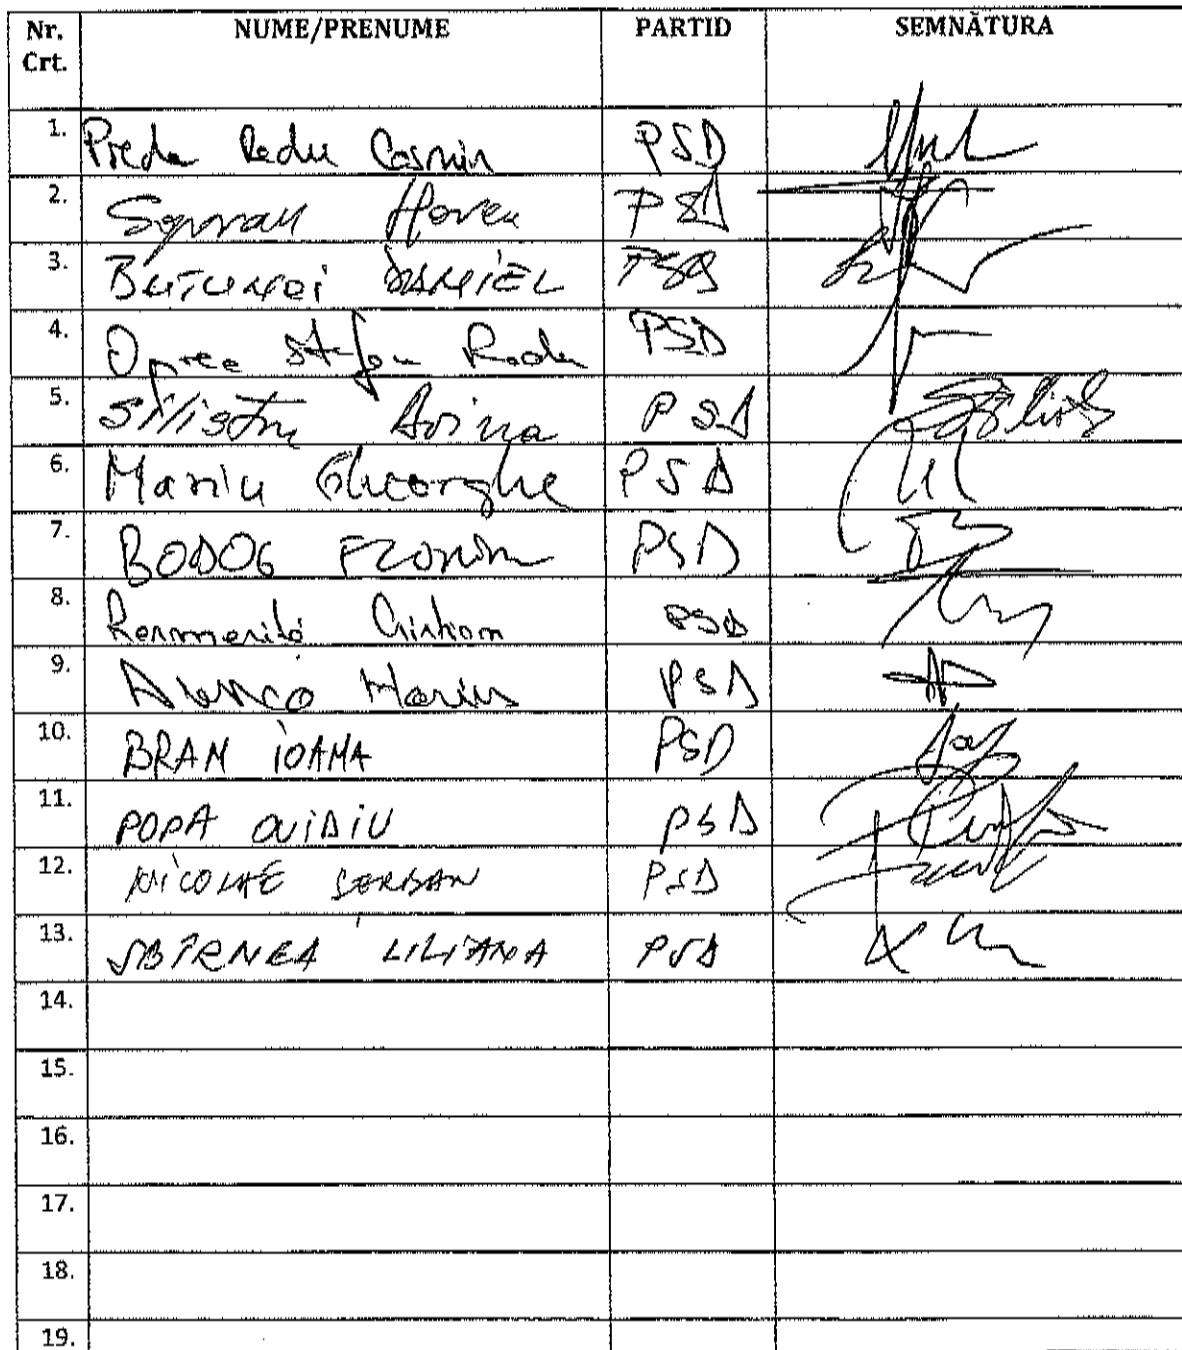 Nr. Crt. NUME/PRENUME PARTID SEMNĂTURA
1. Preda Radu Cosmin PSD
2. PSD
3. DANIEL PSD
4. Oprea Stefan Radu PSD
5. Silistru Doina PSD
6. Marin Gheorghe PSD
7. BODOG FLORIN PSD
8. PSD
9. Marius PSD
10. BRAN IOANA PSD
11. POPA OVIDIU PSD
12. NICOLAE SERBAN PSD
13. SBÎRNEA LILIANA PSD
14.
15.
16.
17.
18.
19.